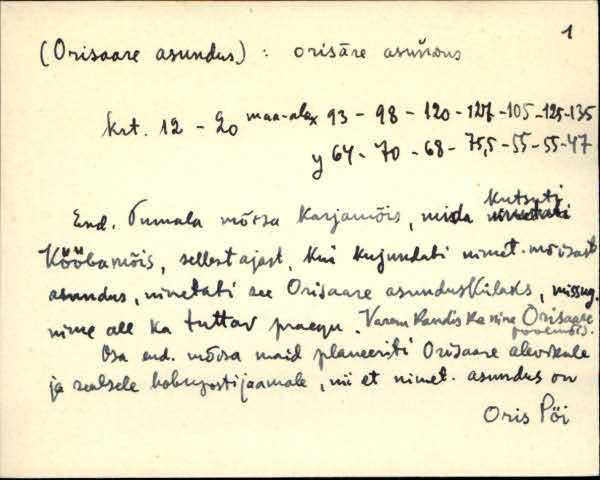 1
(Orisaare asundus) : orisāre asundus
krt. 12 - 20 maa-ala x 93 - 98 - 120 - 127 - 105 - 125 - 135
y 64 - 70 - 68 - 75,5 - 55 - 55 - 47
kutsuti
End. Tumala mõisa karjamõis, mida nimetati
Kööbamõis, sellest ajast, kui kujundati nimet. mõisast
asundus, nimetati see Orisaare asundusKülaks, missug.
nime all ka tuttav praegu. Varem kandis ka nime Orisaare
poolmõis.
Osa end. mõisa maid planeeriti Orisaare alevikule
ja sealsele hobupostijaamale, nii et nimet. asundus on
Oris Pöi